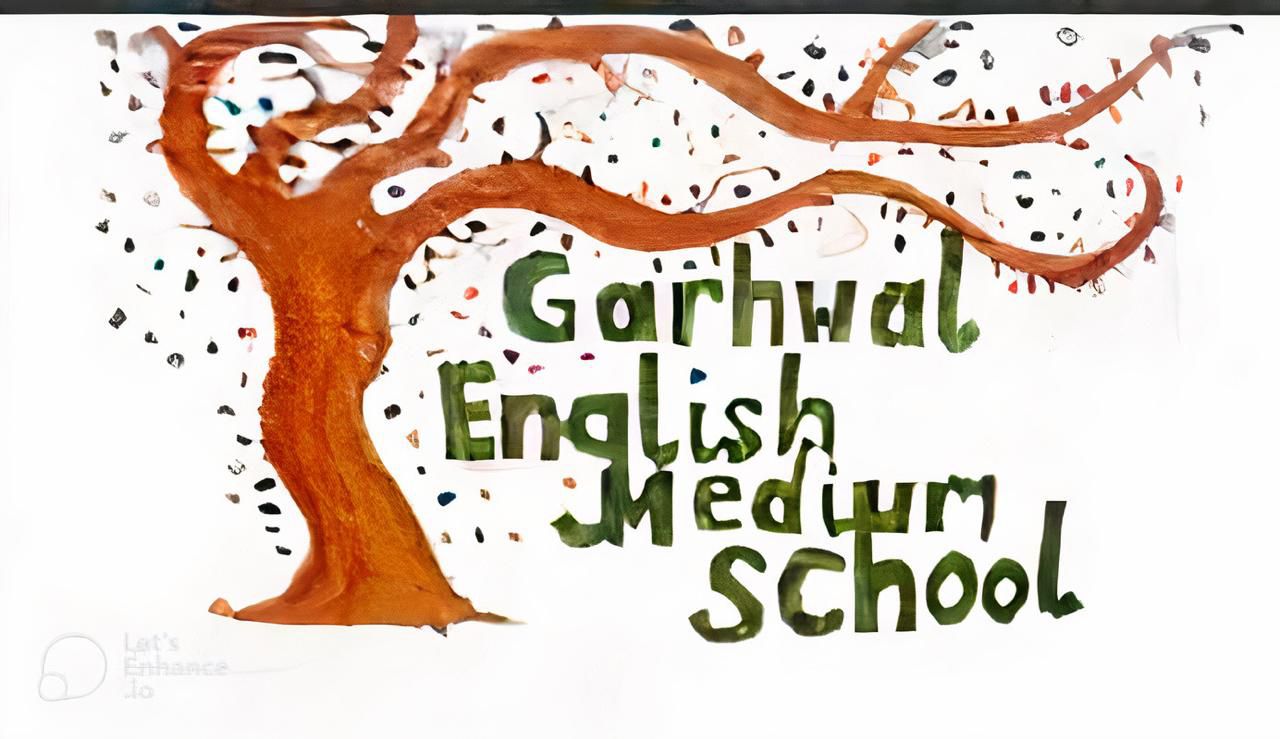 Garhwal
English
Medium
School
Let's
Enhance
.io